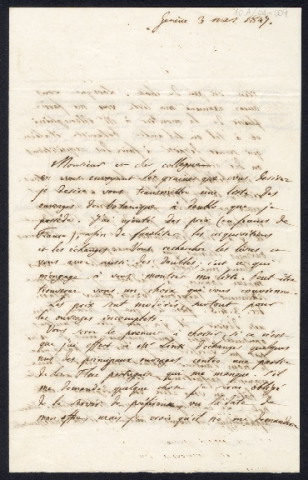 Genève 3 mai 1837.
Monsieur et cher collègue
en vous envoyant les graines que vous desirez
je desire vous transmettre une liste des
ouvrages de botanique à double que je
possède. J'ai ajouté des prix (en francs de
France), afin de faciliter les acquisitions
et les échanges. Vous recherchez les livres
vous avez aussi des doubles, c'est ce qui
m'engage à vous montrer ma liste. Peut être
trouverez vous un choix qui vous conviendra.
Les prix sont modérés, surtout pour
les ouvrages incomplets.
Vous serez le premier à choisir, si ce n'est
que j'ai offert à Mr d'échanger quelques
uns des principaux ouvrages contre une partie
de la flore portugaise qui me manque. S'il
me demande quelque chose je serai obligé
de le servir de préférence vu la date de
mon offre, mais je crois qu'il ne me demandera